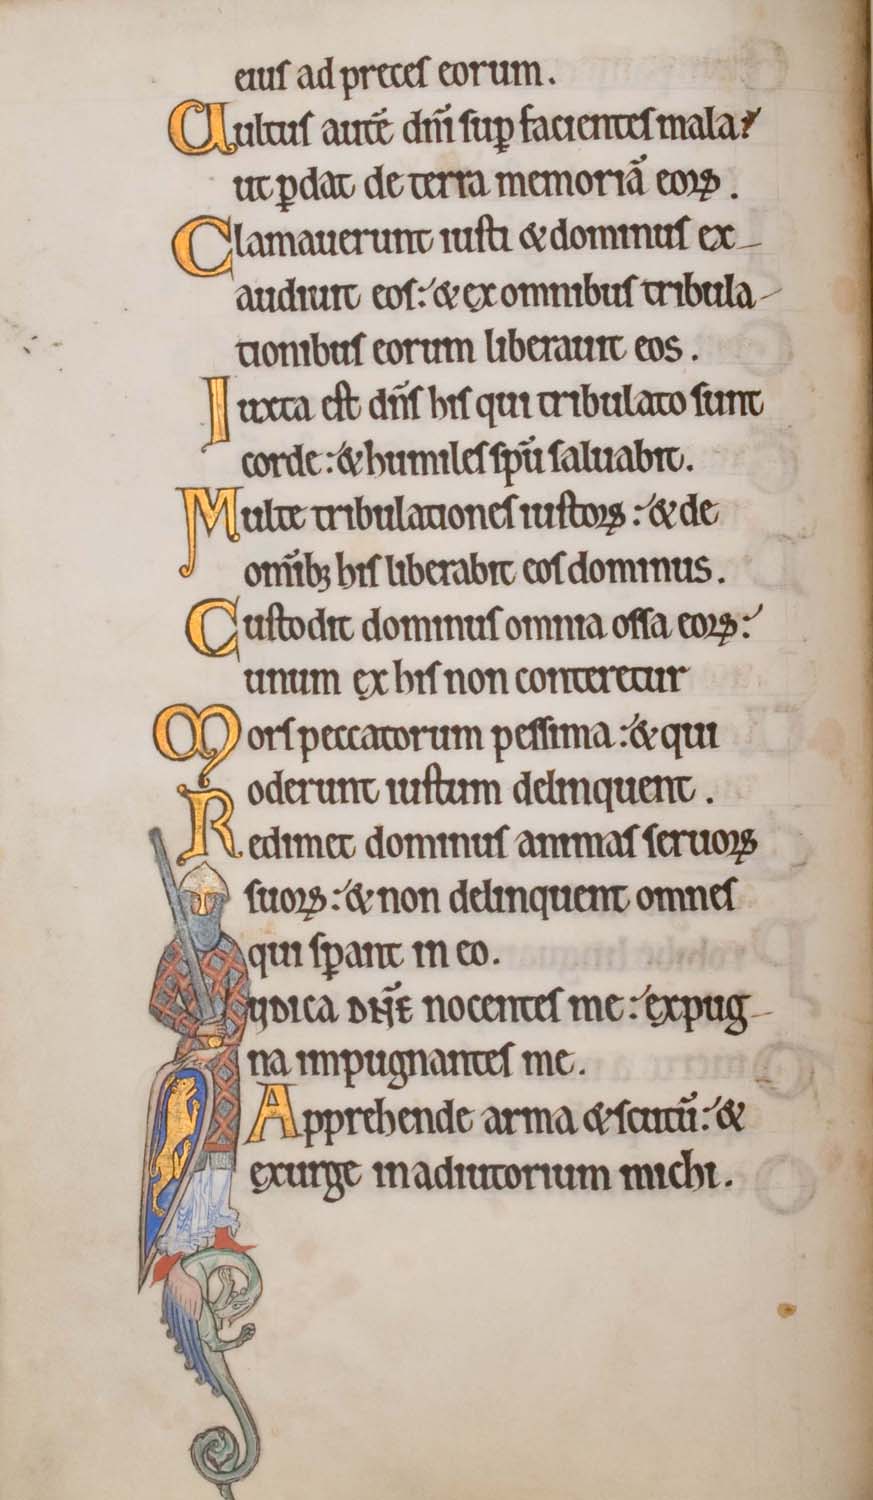 eius ad preces eorum.
Uultus autē dñi sup̱ facientes mala:
ut p̱dat de terra memoriā eoꝝ.
Clamauerunt iusti & dominus ex-
audiuit eos: & ex omnibus tribula-
tionibus eorum liberauit eos.
Iuxta est dñs his qui tribulato sunt
corde: & humiles spū saluabit.
Multe tribulationes iustoꝝ: & de
om̄ibꝫ his liberabit eos dominus.
Custodit dominus omnia ossa eoꝝ:
unum ex his non conteretur
Mors peccatorum pessima: & qui
oderunt iustum delinquent.
Redimet dominus animas seruoꝝ
suoꝝ: & non delinquent omnes
qui sp̱ant in eo.
Iudica dn̄e nocentes me: expug-
na inpugnantes me.
Apprehende arma & scutū: &
exurge in adiutorium michi.